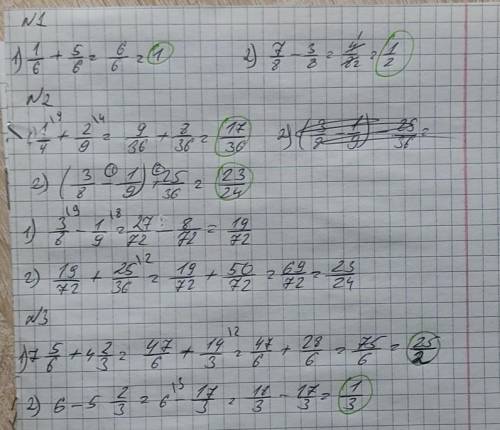 №1
1) 1/6 + 5/6 = 6/6 = 1 2) 7/8 - 3/8 = 4/82 = 1/2
№2
1/4 \9 + 2/9 \4 = 9/36 + 8/36 = 17/36 2) (3/8 - 1/9) - 25/36 =
2) (3/8 - 1/9) + 25/36 = 23/24
1) 3/6 \9 - 1/9 \8 = 27/72 - 8/72 = 19/72
2) 19/72 + 25/36 \2 = 19/72 + 50/72 = 69/72 = 23/24
№3
1) 7 5/6 + 4 2/3 = 47/6 + 14/3 \2 = 47/6 + 28/6 = 75/6 = 25/2
2) 6 - 5 2/3 = 6 \3 - 17/3 = 18/3 - 17/3 = 1/3